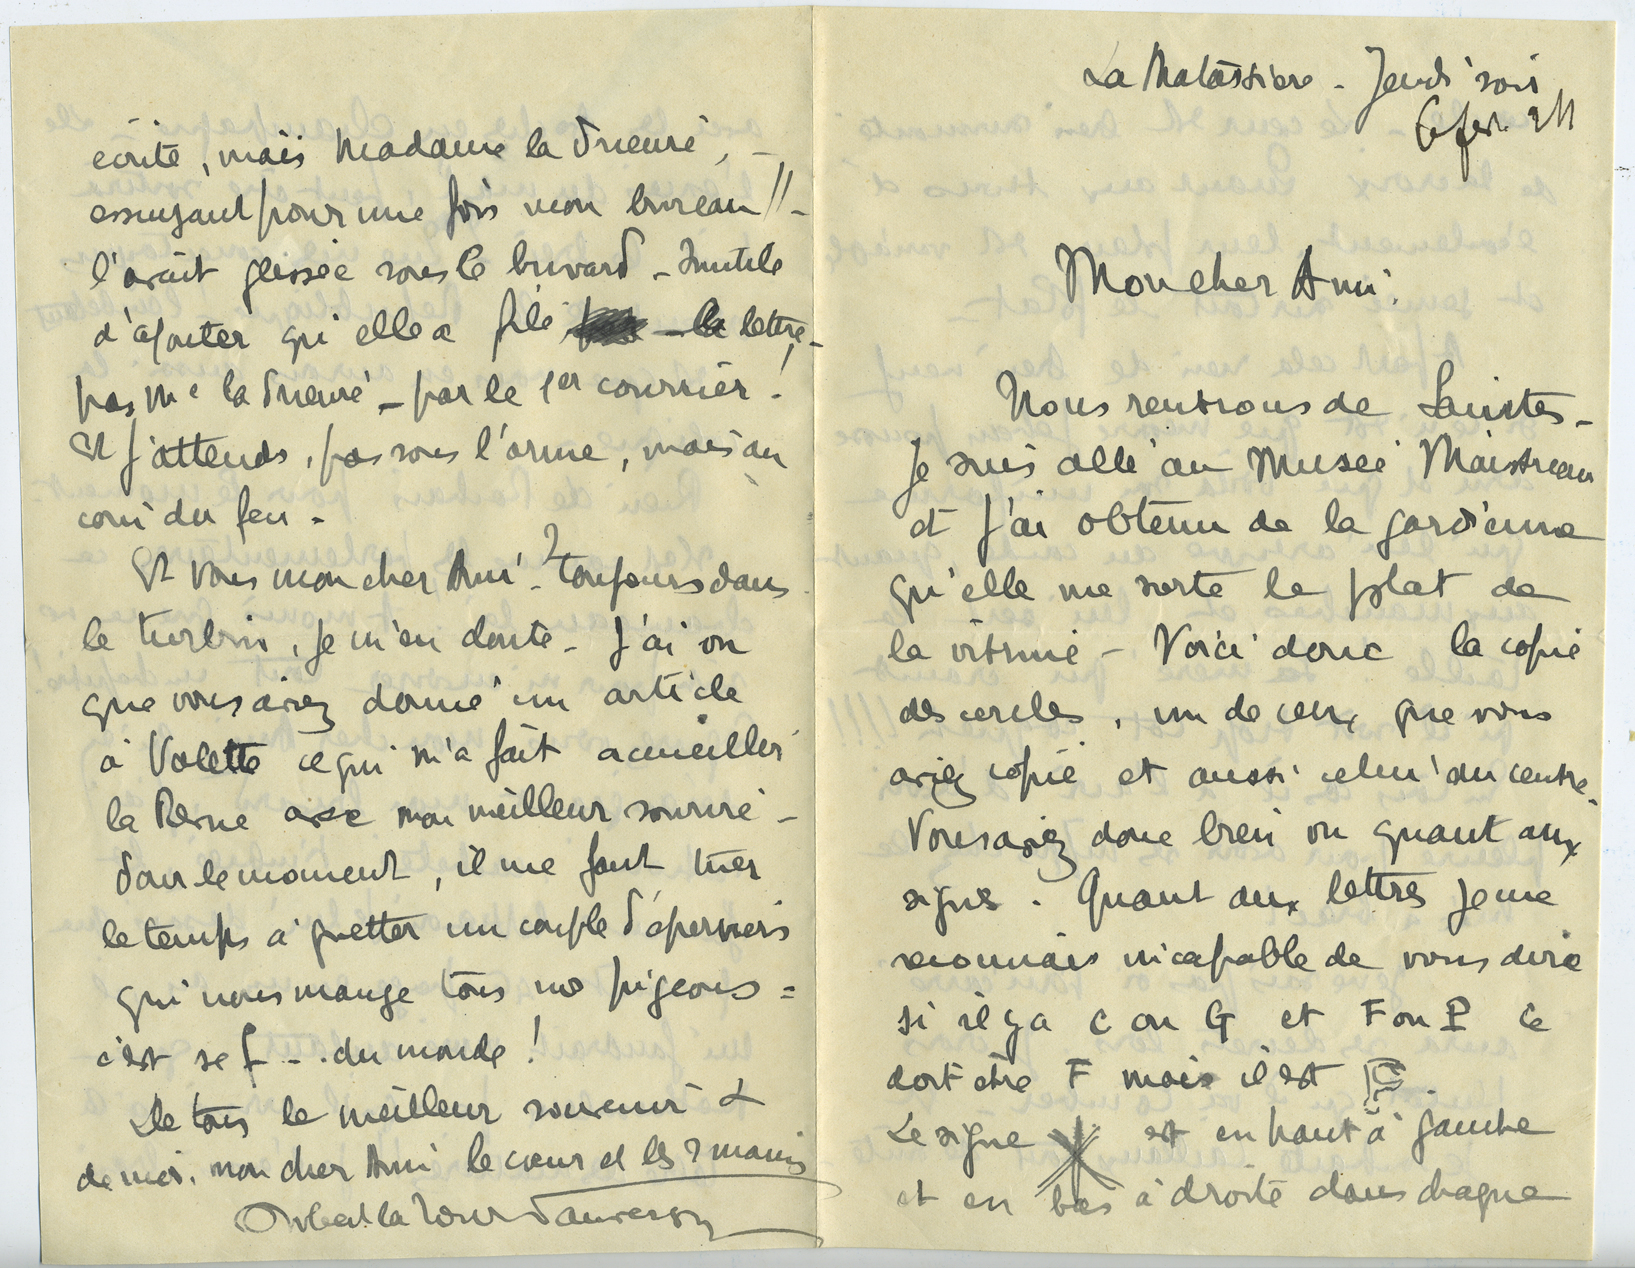 La Matassière - Jeudi soir
6 fev. 
Mon cher Ami.
Nous rentrons de Saintes -
Je suis allé au Musée Maistreau
et j'ai obtenu de la gardienne
qu'elle me sorte le plat de
la vitrine - Voici donc la copie
des cercles, un de ceux que vous
aviez copié et aussi celui du centre.
Vous aviez donc bien vu quant aux
signes. Quant aux lettres je me
reconnais incapable de vous dire
si il y a C ou G et F ou P Ce
doit être F mais il est
Le signe est en haut à gauche
et en bas à droite dans chaque
écrite, mais Madame la Prieuré, -
essuyant pour une fois mon bureau !! -
l'avait glissée sous le buvard - Inutile
d'ajouter qu'elle a filé - la lettre -
pas Me la Prieuré - par le 1er courrier !
Et j'attends, pas sous l'arme, mais au
coin du feu -
Et vous mon cher Ami - ? toujours dans
le turbin, je m'en doute - J'ai vu
que vous aviez donné un article
à Valette ce qui m'a fait accueillir
la Revue avec mon meilleur sourire -
Pour le moment, il me faut tuer
le temps à guetter un couple d'éperviers
qui nous mange tous nos pigeons =
c'est se f... du monde !
De tous le meilleur souvenir &
de moi, mon cher Ami le cœur et les 2 mains